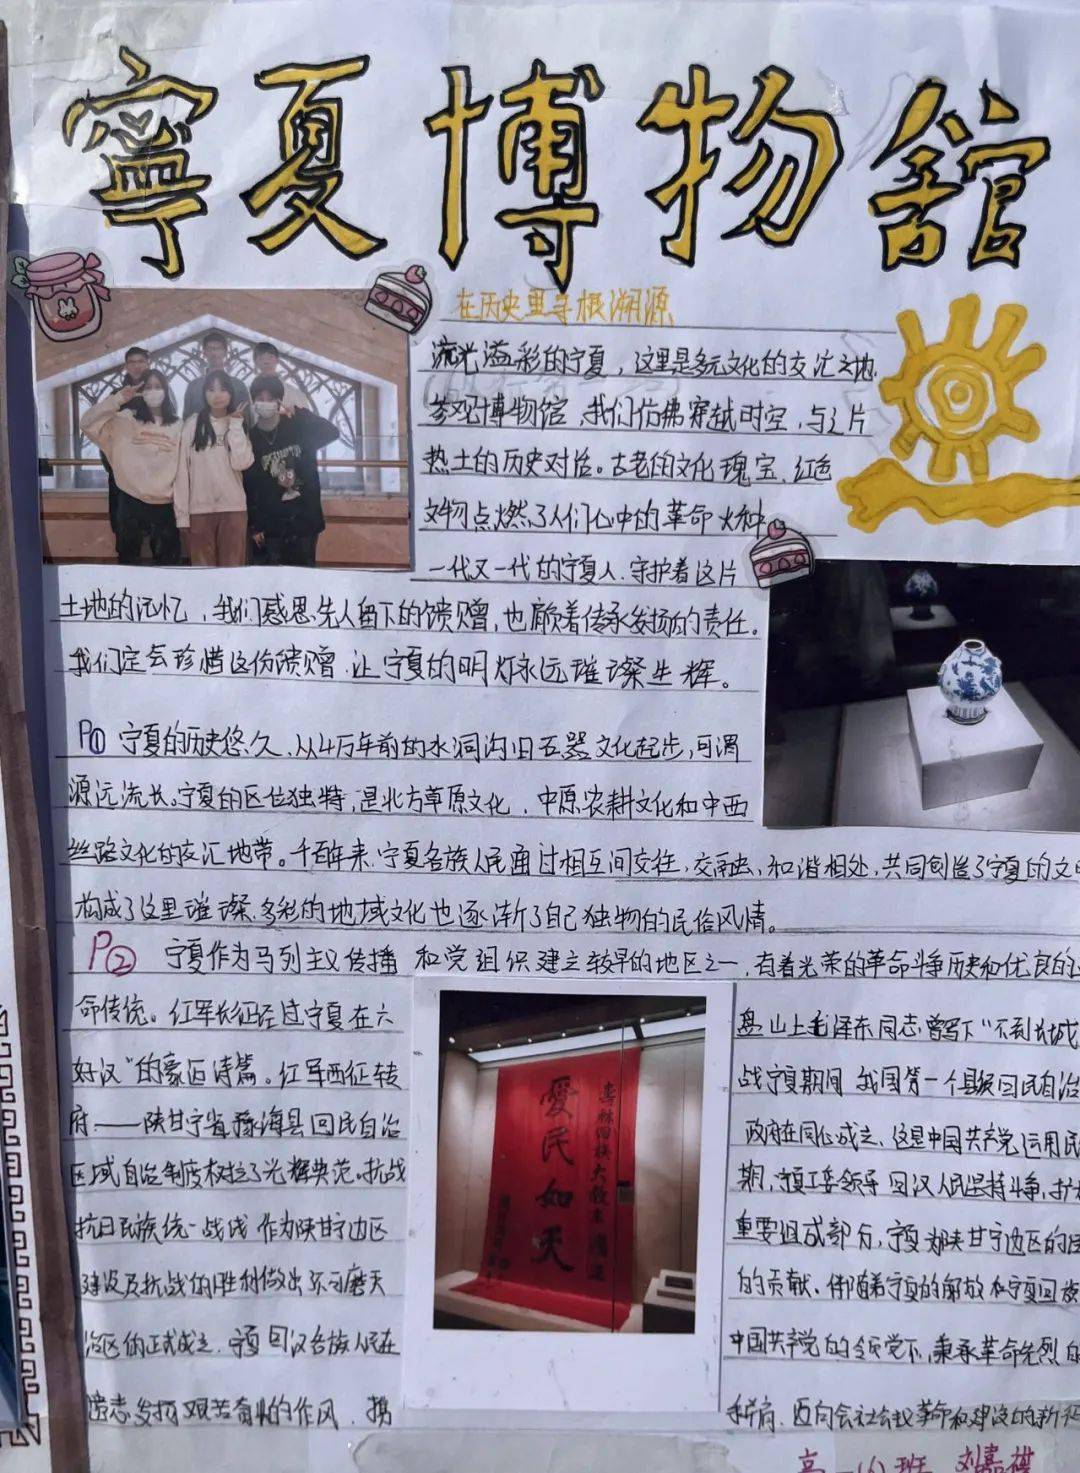 寧夏博物館
在历史里寻根溯源
流光溢彩的宁夏，这里是多元文化的交汇之地
参观博物馆，我们仿佛穿越时空，与这片
热土的历史对话。古老的文化瑰宝、红色
文物点燃了人们心中的革命火种
一代又一代的宁夏人、守护着这片
土地的记忆，我们感恩先人留下的馈赠，也
着传承发扬的责任。
我们定会珍惜这份馈赠.让宁夏的明灯永远璀璨生辉。
P① 宁夏的历史悠久、从4万年前的水洞沟旧石器文化起步，可谓
源远流长。宁夏的区位独特，是北方草原文化、中原农耕文化和中西
丝路文化的交汇地带。千百年来、宁夏各族人民通过相互间交往，交融、和谐相处，共同创造了宁夏的文
构成了这里璀璨多彩的地域文化也逐渐了自己独特的民俗风情。
P② 宁夏作为马列主义传播 和党组织建立较早的地区之一，有着光荣的革命斗争历史和优良的
命传统。红军长征经过宁夏在六 盘山上毛泽东同志曾写下“不到长城
好汉”的豪迈诗篇。红军西征转 战宁夏期间 我国第一个县级回民自治
府——陕甘宁省豫海县回民自治 政府在同心成立，这是中国共产党运用民
区域自治制度树立了光辉典范。抗战 期，宁夏工委领导回汉人民坚持斗争，扩
抗日民族统一战线 作为陕甘宁边区 重要组成部分，宁夏为陕甘宁边区的
建设及抗战的胜利做出不可磨灭 的贡献。伴随着宁夏的解放和宁夏回族
治区的正式成立、宁夏回汉各族人民在 中国共产党的领党下，秉承革命先烈的
遗志发扬艰苦奋斗的作风、携 迈向会社会主义革命和建设的新征
愛民如天
高一(6)班 刘嘉祺